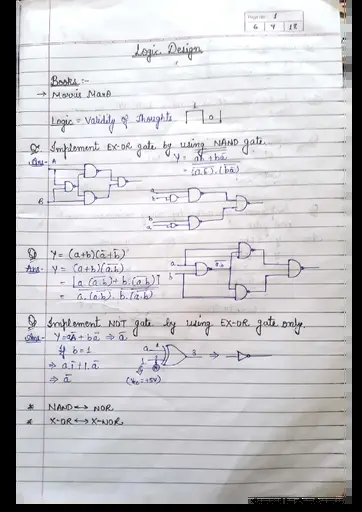 Page No: 1
6 4 18
Logic Design
Books :-
→ Morris Mano
Logic = Validity of Thoughts 1 0
Q Implement EX-OR gate by using NAND gate.
Ans- A
B
Y = ab̄ + bā
a
b
b
a
Q Y = (a+b)(ā+b̄)
Ans- Y = (a+b)(a.b)
= [a.(a.b) + b.(a.b)]
= a.(a.b) . b.(a.b)
a
b
Q Implement NOT gate by using EX-OR gate only.
Ans- Y = ab̄ + bā ⇒ ā
If b=1
⇒ a.1̄ + 1.ā
⇒ ā
a 1 3 ⇒
* NAND ↔ NOR
* X-OR ↔ X-NOR